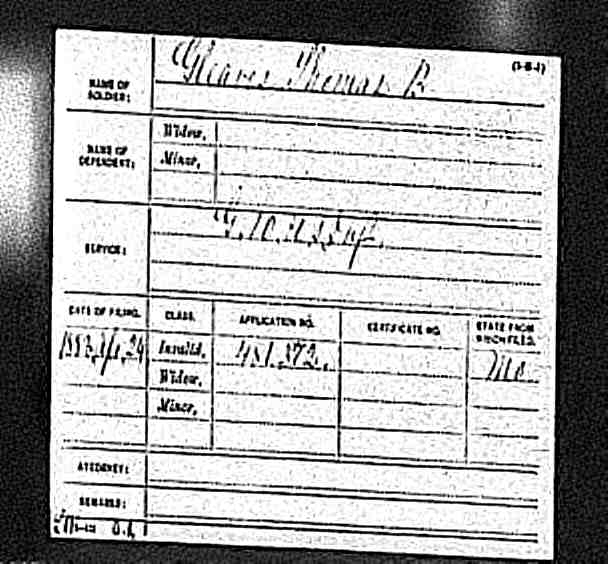 (3-B-4)
Gleaves Thomas B.
NAME OF SOLDIER:
NAME OF DEPENDENT:
Widow,
Minor,
SERVICE:
DATE OF FILING.
CLASS.
APPLICATION NO.
CERTIFICATE NO.
STATE FROM WHICH FILED.
Invalid,
481,372.
Mo
Widow,
Minor,
ATTORNEY:
REMARKS: